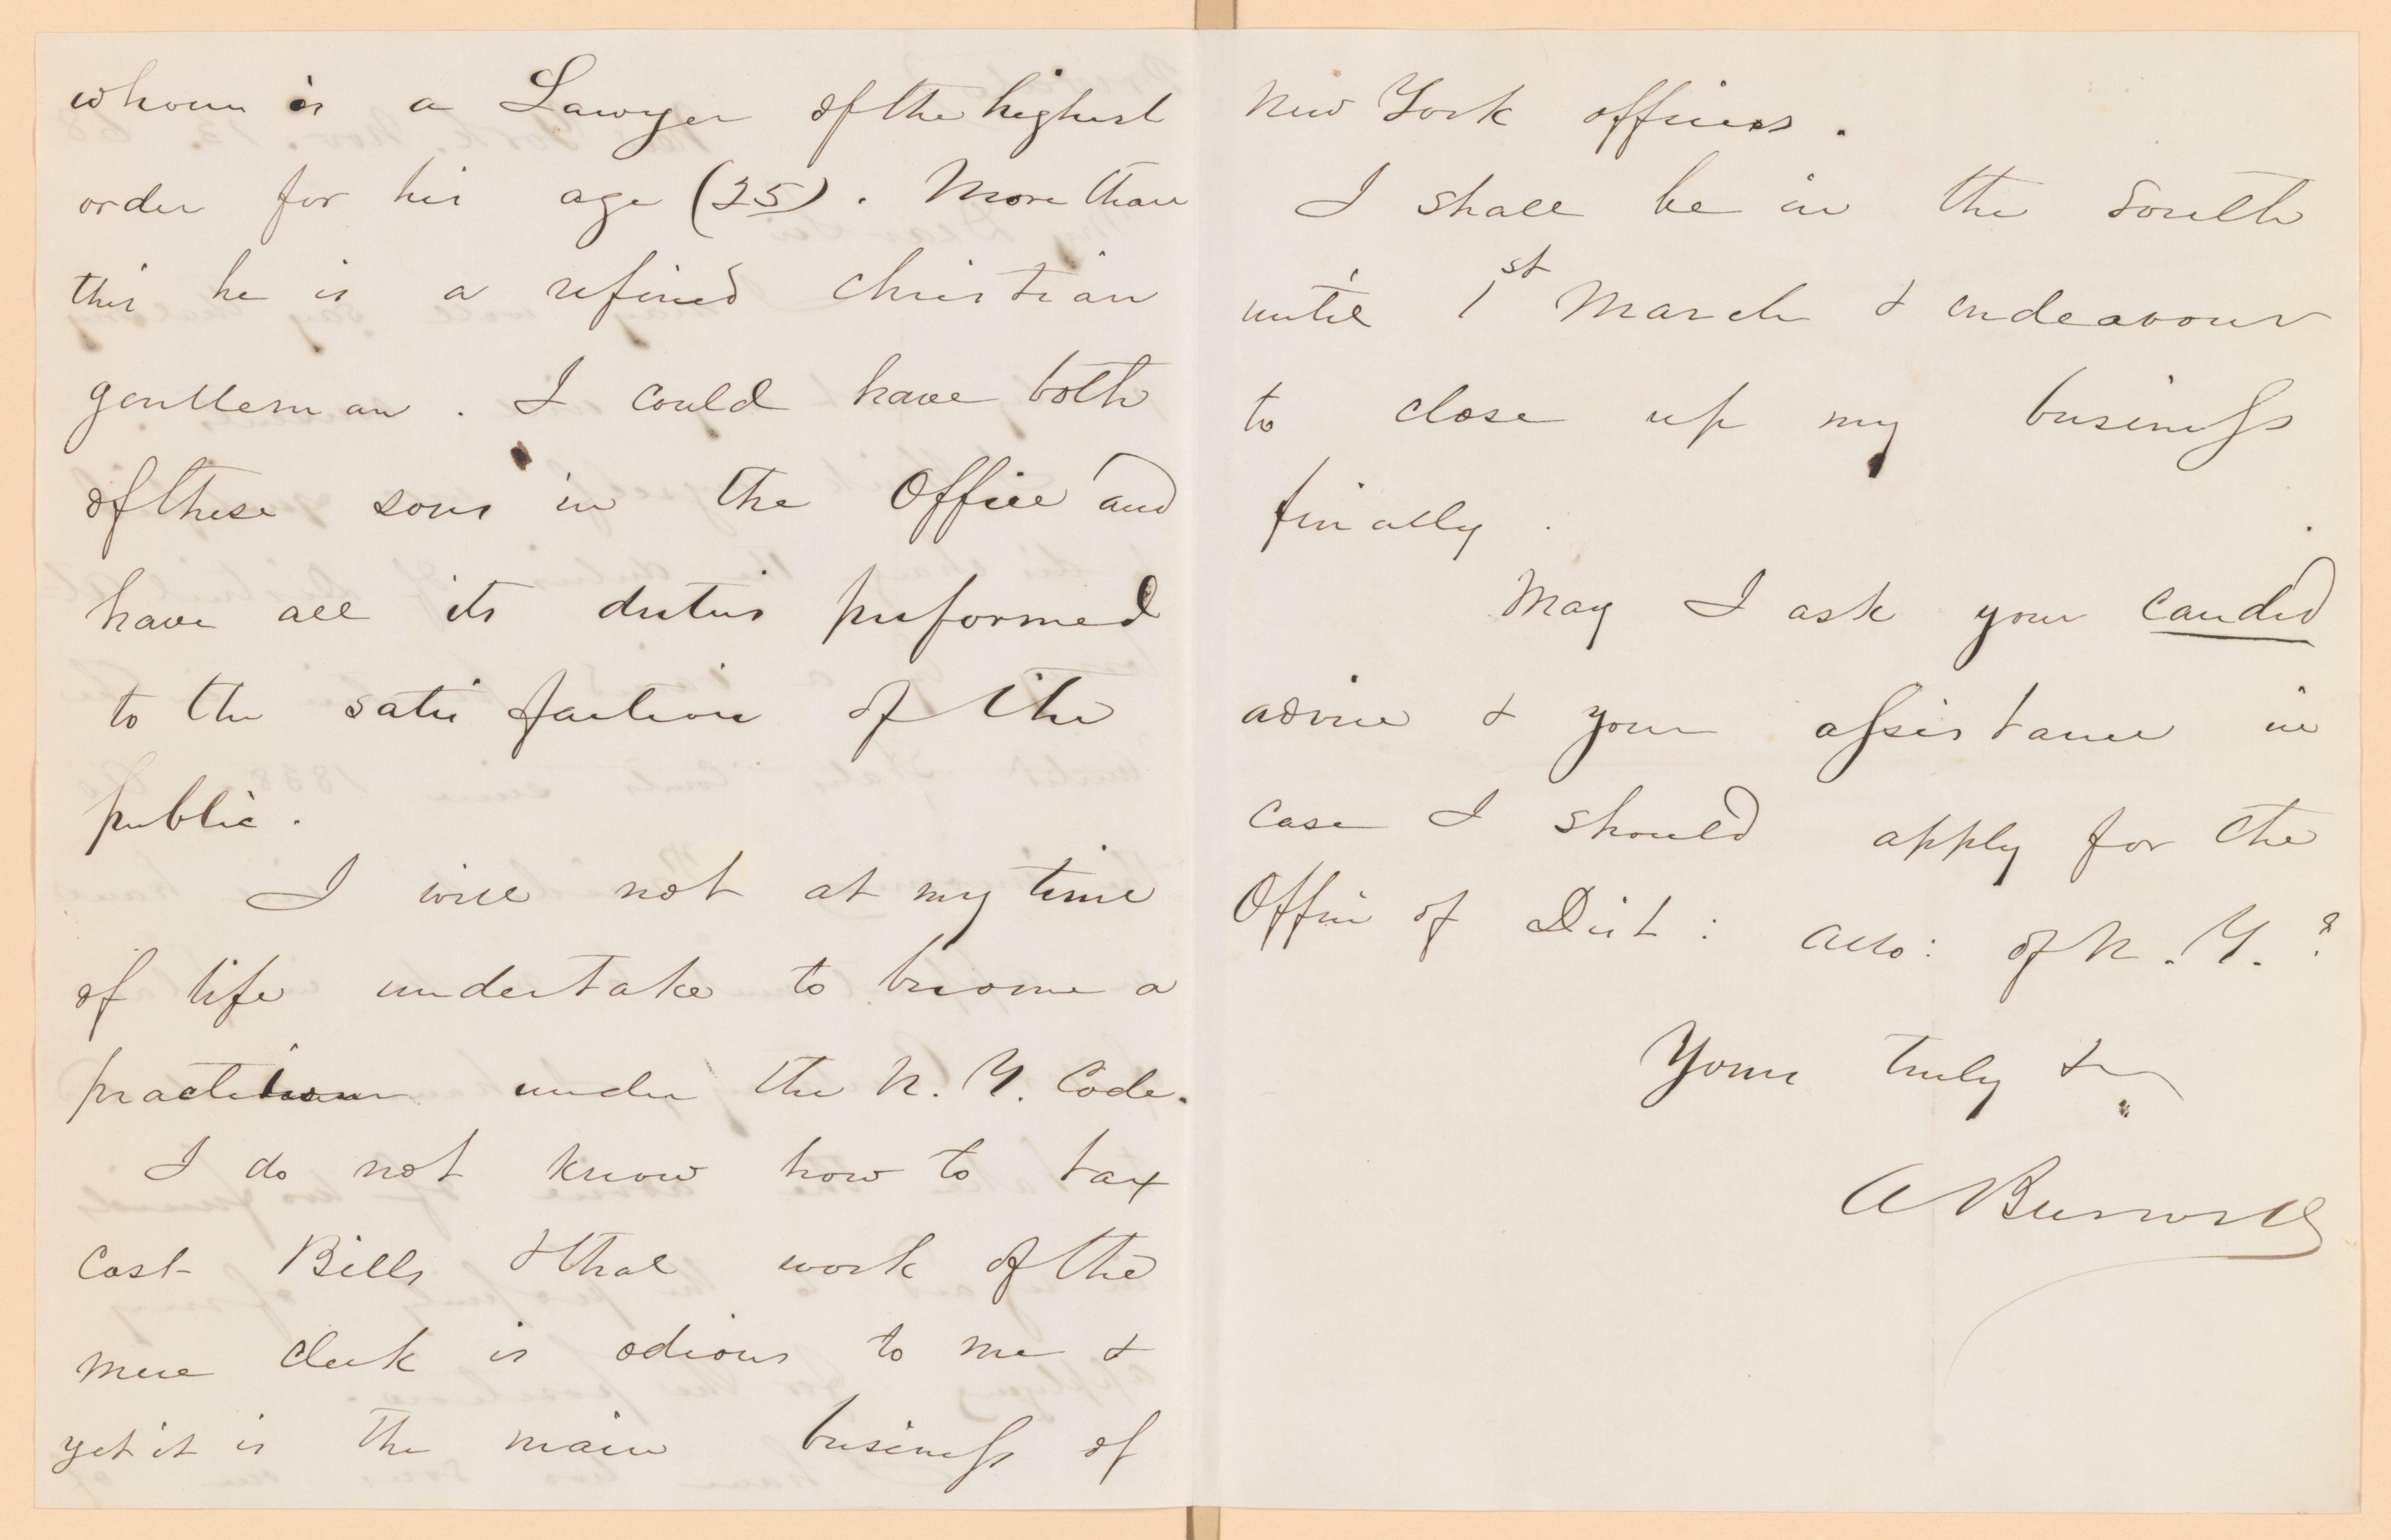 whom is a Lawyer of the highest
order for his age (25). More than
this he is a refined Christian
gentleman. I could have both
of these sons in the Office and
have all its duties performed
to the satisfaction of the
public.
I will not at my time
of life undertake to become a
practitioner under the N. Y. Code.
I do not know how to tax
cost Bills & that work of the
mere clerk is odious to me &
yet it is the main business of
New York offices.
I shall be in the South
until 1st March & endeavour
to close up my business
finally.
May I ask your candid
advice & your assistance in
case I should apply for the
Office of Dist: Atto: of N. Y.?
Yours truly &
A Burwell